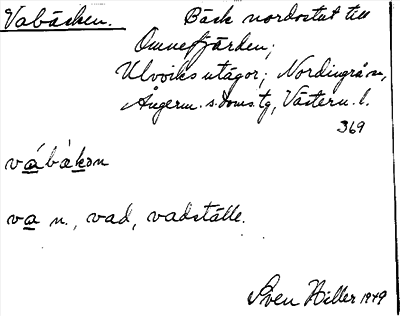 Vabäcken. Bäck nordostut till
Omnefjärden;
Ulvviks utägor; Nordingrå sn,
Ångerm. s. doms. tg, Västern. l.
369
vábäkən
va n., vad, vadställe.
Sven Hiller 1949